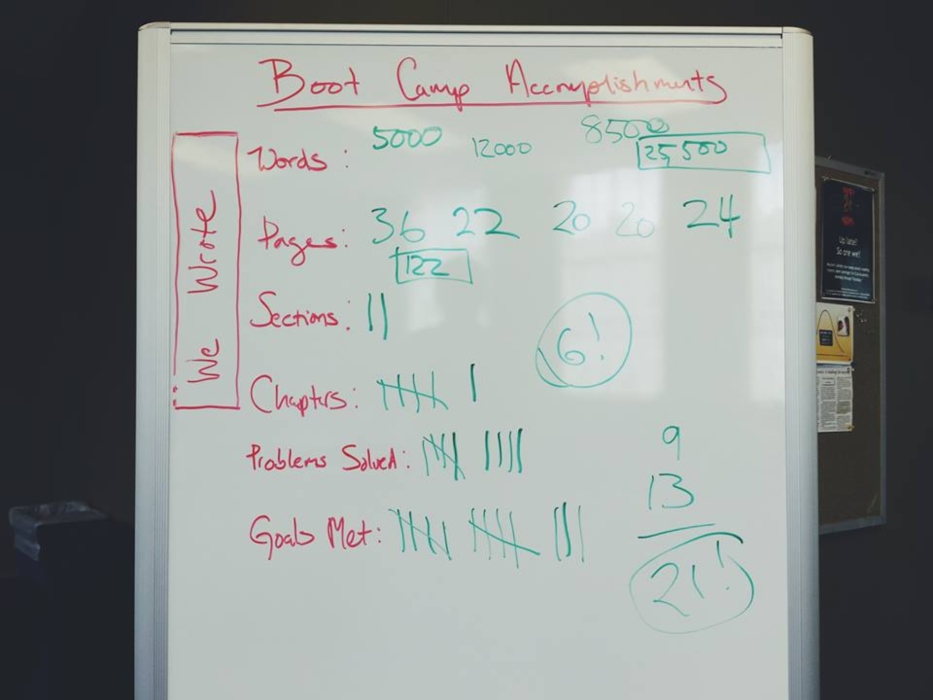 Boot Camp Accomplishments
We Wrote
Words: 5000 12000 8500
25,500
Pages: 36 22 20 20 24
122
Sections: ||
6!
Chapters: |||| |
Problems Solved: |||| ||||
9
13
Goals Met: |||| |||| |||
21!
Up late?
So are we!